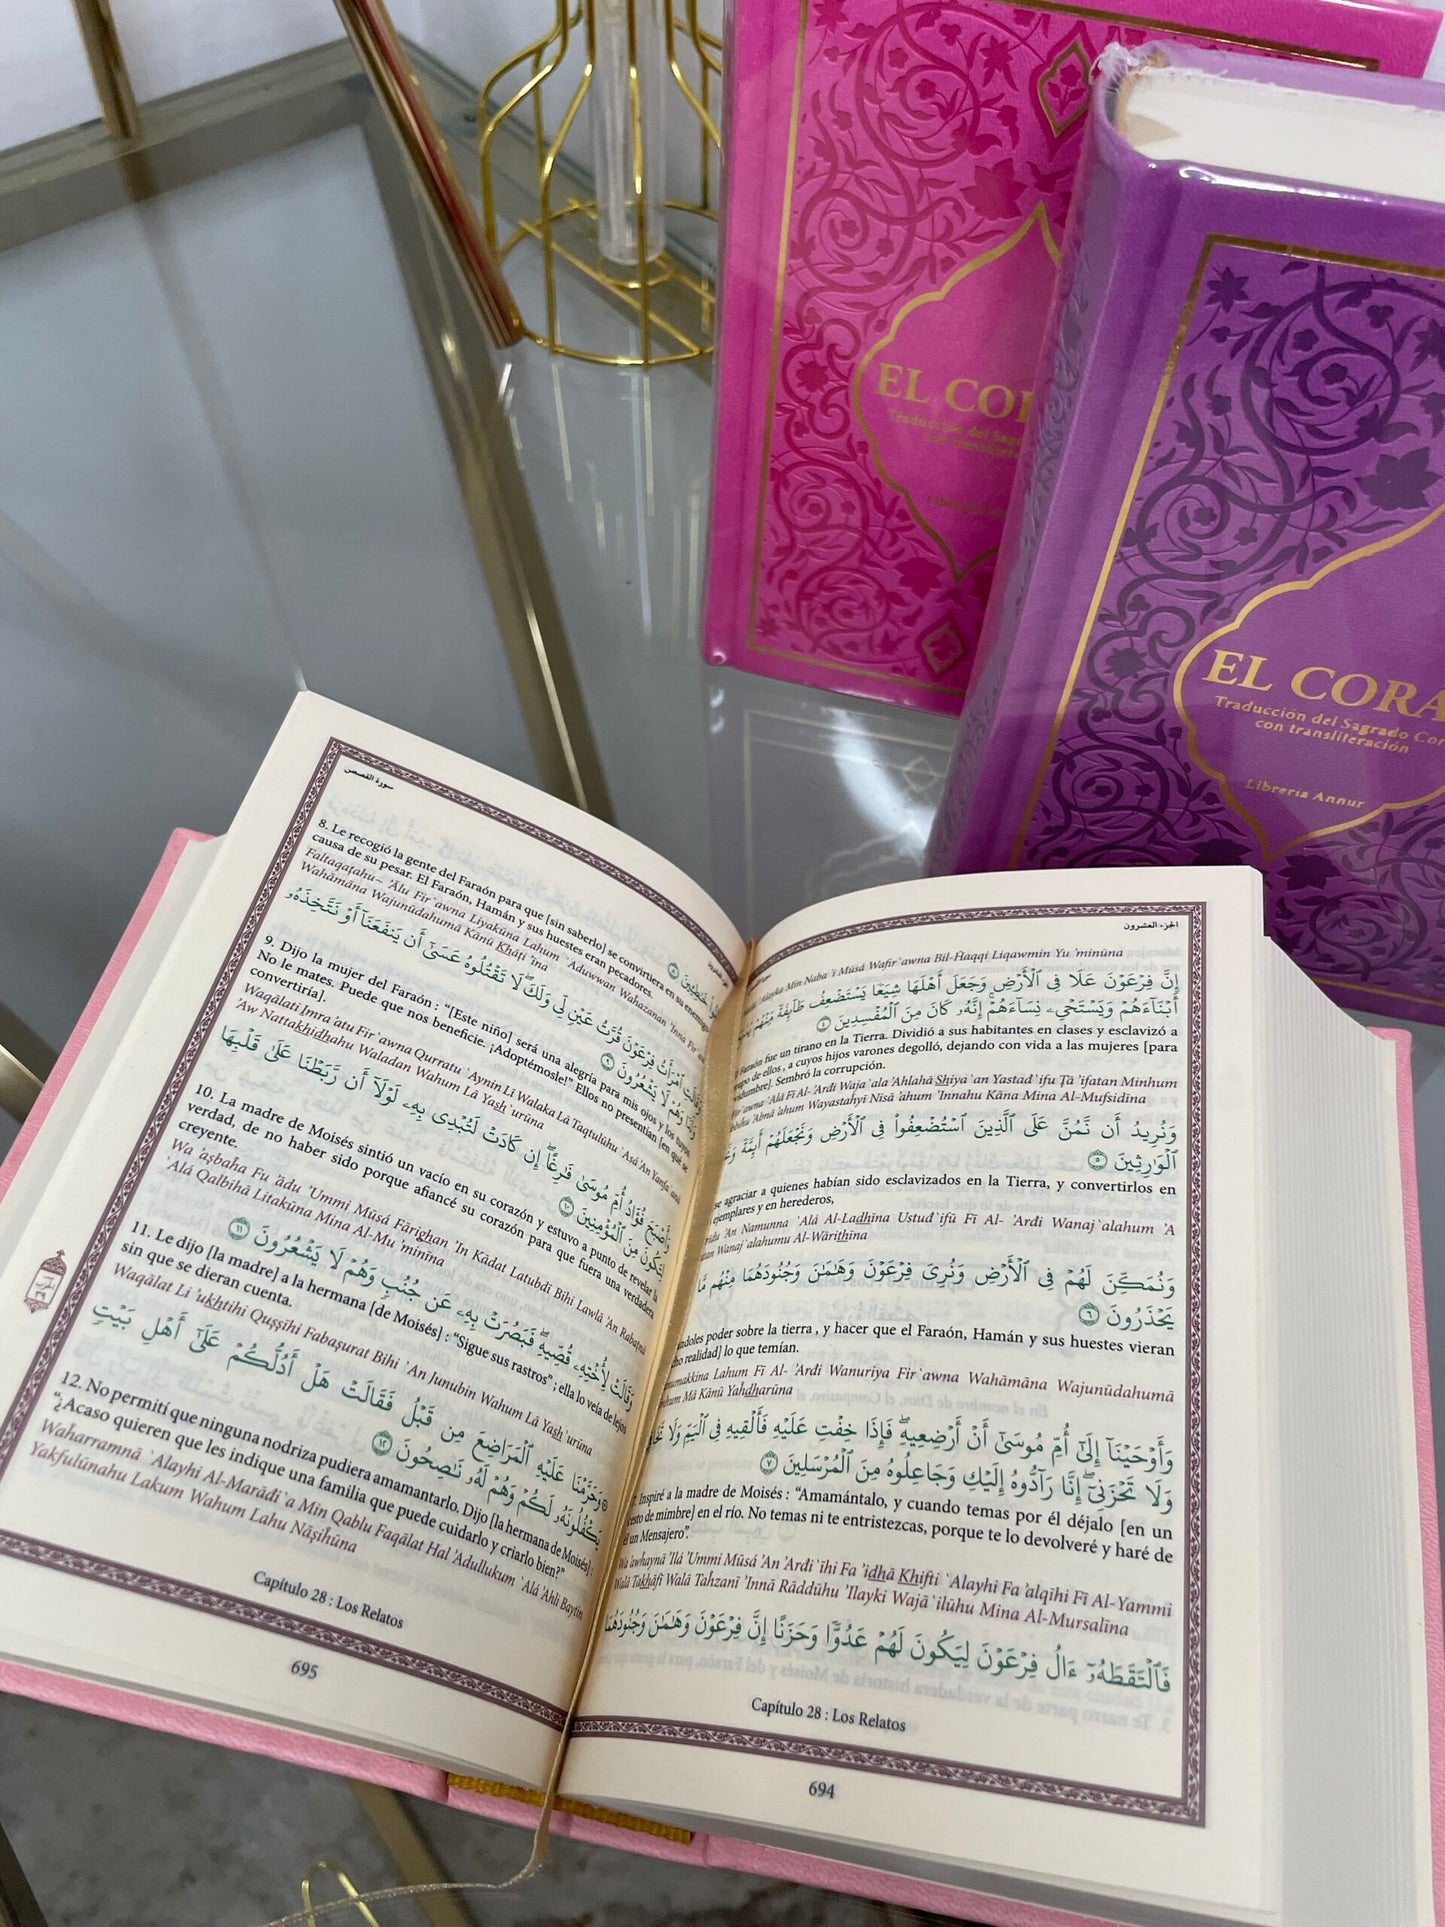 EL COR
Traducción del Sagr
con translitera
EL CORA
Traducción del Sagrado Cor
con transliteración
Librería Annur
الجزء العشرون
Min Naba 'i Mūsá Wafir`awna Bil-Ĥaqqi Liqawmín Yu 'minūna
إِنَّ فِرْعَوْنَ عَلَا فِى ٱلْأَرْضِ وَجَعَلَ أَهْلَهَا شِيَعًا يَسْتَضْعِفُ طَآئِفَةً مِّنْهُمْ
أَبْنَآءَهُمْ وَيَسْتَحْىِۦ نِسَآءَهُمْ إِنَّهُۥ كَانَ مِنَ ٱلْمُفْسِدِينَ ٤
Faraón fue un tirano en la Tierra. Dividió a sus habitantes en clases y esclavizó a
de ellos , a cuyos hijos varones degolló, dejando con vida a las mujeres [para
Sembró la corrupción.
`Alá Fī Al-'Arđi Waja`ala 'Ahlahā Shiya`an Yastađ`ifu Ţā 'ifatan Minhum
'Abnā 'ahum Wayastahyī Nisā 'ahum 'Innahu Kāna Mina Al-Mufsidīna
وَنُرِيدُ أَن نَّمُنَّ عَلَى ٱلَّذِينَ ٱسْتُضْعِفُوا۟ فِى ٱلْأَرْضِ وَنَجْعَلَهُمْ أَئِمَّةً
ٱلْوَٰرِثِينَ ٥
se agraciar a quienes habían sido esclavizados en la Tierra, y convertirlos en
ejemplares y en herederos,
'An Namunna `Alá Al-Ladhīna Ustuđ`ifū Fī Al- 'Arđi Wanaj`alahum 'A
Wanaj`alahumu Al-Wārithīna
وَنُمَكِّنَ لَهُمْ فِى ٱلْأَرْضِ وَنُرِىَ فِرْعَوْنَ وَهَٰمَٰنَ وَجُنُودَهُمَا مِنْهُم مَّا
يَحْذَرُونَ ٦
poder sobre la tierra , y hacer que el Faraón, Hamán y sus huestes vieran
realidad] lo que temían.
Lahum Fī Al- 'Arđi Wanuriya Fir`awna Wahāmāna Wajunūdahumā
Mā Kānū Yaĥdharūna
وَأَوْحَيْنَآ إِلَىٰٓ أُمِّ مُوسَىٰٓ أَنْ أَرْضِعِيهِ فَإِذَا خِفْتِ عَلَيْهِ فَأَلْقِيهِ فِى ٱلْيَمِّ وَلَا
وَلَا تَحْزَنِىٓ إِنَّا رَآدُّوهُ إِلَيْكِ وَجَاعِلُوهُ مِنَ ٱلْمُرْسَلِينَ ٧
Inspiré a la madre de Moisés : “Amamántalo, y cuando temas por él déjalo [en un
cesto de mimbre] en el río. No temas ni te entristezcas, porque te lo devolveré y haré de
un Mensajero”.
Wa 'awhaynā 'Ilá 'Ummi Mūsá 'An 'Arđi`īhi Fa 'idhā Khifti `Alayhi Fa 'alqīhi Fī Al-Yammi
Walā Takhāfī Walā Taĥzanī 'Innā Rāddūhu 'Ilayki Wajā`ilūhu Mina Al-Mursalīna
فَٱلْتَقَطَهُۥٓ ءَالُ فِرْعَوْنَ لِيَكُونَ لَهُمْ عَدُوًّا وَحَزَنًا إِنَّ فِرْعَوْنَ وَهَٰمَٰنَ وَجُنُودَهُمَا
Capítulo 28 : Los Relatos
694
سورة القصص
8. Le recogió la gente del Faraón para que [sin saberlo] se convirtiera en su enemigo
causa de su pesar. El Faraón, Hamán y sus huestes eran pecadores.
Fāltaqaţahu~ 'Ālu Fir`awna Liyakūna Lahum `Aduwwan Wahazanan 'Inna
Wahāmāna Wajunūdahumā Kānū Khāţi 'īna
وَقَالَتِ ٱمْرَأَتُ فِرْعَوْنَ قُرَّتُ عَيْنٍ لِّى وَلَكَ لَا تَقْتُلُوهُ عَسَىٰٓ أَن يَنفَعَنَآ أَوْ نَتَّخِذَهُۥ
وَلَدًا وَهُمْ لَا يَشْعُرُونَ ٩
9. Dijo la mujer del Faraón : “[Este niño] será una alegría para mis ojos y los tuyos.
No le mates. Puede que nos beneficie. ¡Adoptémosle!” Ellos no presentían [en qué se
convertiría].
Waqālati Imra 'atu Fir`awna Qurratu `Aynin Lī Walaka Lā Taqtulūhu `Asá 'An Yanfa`anā
'Aw Nattakhidhahu Waladan Wahum Lā Yash`urūna
وَأَصْبَحَ فُؤَادُ أُمِّ مُوسَىٰ فَٰرِغًا إِن كَادَتْ لَتُبْدِى بِهِۦ لَوْلَآ أَن رَّبَطْنَا عَلَىٰ قَلْبِهَا
لِتَكُونَ مِنَ ٱلْمُؤْمِنِينَ ١٠
10. La madre de Moisés sintió un vacío en su corazón y estuvo a punto de revelar la
verdad, de no haber sido porque afiancé su corazón para que fuera una verdadera
creyente.
Wa 'aşbaĥa Fu 'ādu 'Ummi Mūsá Fārighan 'In Kādat Latubdī Bihi Lawlā 'An Rabaţnā
`Alá Qalbihā Litakūna Mina Al-Mu 'minīna
وَقَالَتْ لِأُخْتِهِۦ قُصِّيهِ فَبَصُرَتْ بِهِۦ عَن جُنُبٍ وَهُمْ لَا يَشْعُرُونَ ١١
11. Le dijo [la madre] a la hermana [de Moisés] : “Sigue sus rastros” ; ella lo veía de lejos
sin que se dieran cuenta.
Waqālat Li 'ukhtihi Quşşīhi Fabaşurat Bihi `An Junubin Wahum Lā Yash`urūna
وَحَرَّمْنَا عَلَيْهِ ٱلْمَرَاضِعَ مِن قَبْلُ فَقَالَتْ هَلْ أَدُلُّكُمْ عَلَىٰٓ أَهْلِ بَيْتٍ
يَكْفُلُونَهُۥ لَكُمْ وَهُمْ لَهُۥ نَٰصِحُونَ ١٢
12. No permití que ninguna nodriza pudiera amamantarlo. Dijo [la hermana de Moisés] :
“¿Acaso quieren que les indique una familia que puede cuidarlo y criarlo bien?”
Waĥarramnā `Alayhi Al-Marāđi`a Min Qablu Faqālat Hal 'Adullukum `Alá 'Ahli Baytin
Yakfulūnahu Lakum Wahum Lahu Nāşiĥūna
Capítulo 28 : Los Relatos
695